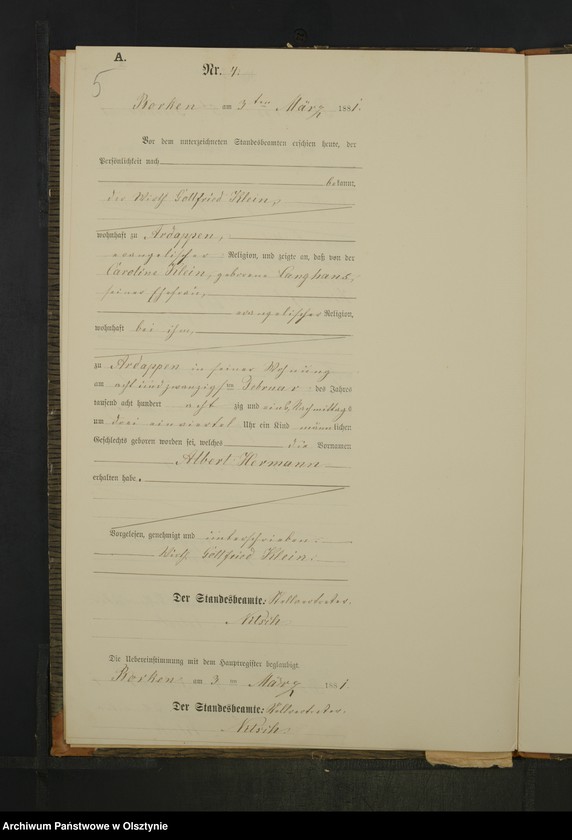 A.
5
Nr. 4.
Borken am 3 ten März 1881.
Vor dem unterzeichneten Standesbeamten erschien heute, der
Persönlichkeit nach
bekannt,
der Wirth Gottfried Klein,
wohnhaft zu Ardappen,
evangelischer Religion, und zeigte an, daß von der
Caroline Klein, geborene Langhans,
seiner Ehefrau,
evangelischer Religion,
wohnhaft bei ihm,
zu Ardappen in seiner Wohnung
am acht und zwanzigsten Februar des Jahres
tausend acht hundert acht zig und eins, Nachmittags
um drei einviertel Uhr ein Kind männlichen
Geschlechts geboren worden sei, welches die Vornamen
Albert Hermann
erhalten habe.
Vorgelesen, genehmigt und unterschrieben.
Wirth Gottfried Klein.
Der Standesbeamte: Stellvertreter.
Die Uebereinstimmung mit dem Hauptregister beglaubigt.
Borken am 3 ten März 1881.
Der Standesbeamte: Stellvertreter.
Archiwum Państwowe w Olsztynie